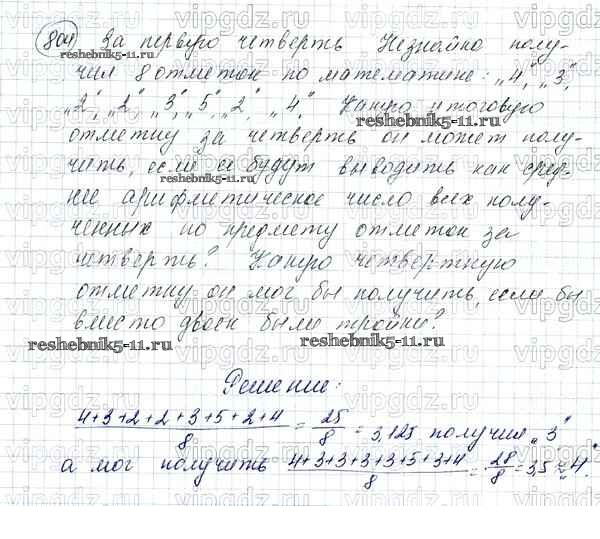 804 За первую четверть Незнайка полу-
чил 8 отметок по математике: „4", „3",
„2", „2", „3", „5", „2", „4". Какую итоговую
отметку за четверть он может полу-
чить, если её будут выводить как сред-
нее арифметическое число всех полу-
ченных по предмету отметок за
четверть? Какую четвертную
отметку он мог бы получить, если бы
вместо двоек были тройки?
Решение:
4+3+2+2+3+5+2+4/8 = 25/8 = 3,125 получил „3"
а мог получить 4+3+3+3+3+5+3+4/8 = 28/8 = 3,5 ≈ „4".
vipgdz.ru
reshebnik5-11.ru
reshebnik5-11.ru
reshebnik5-11.ru
reshebnik5-11.ru
reshebnik5-11.ru